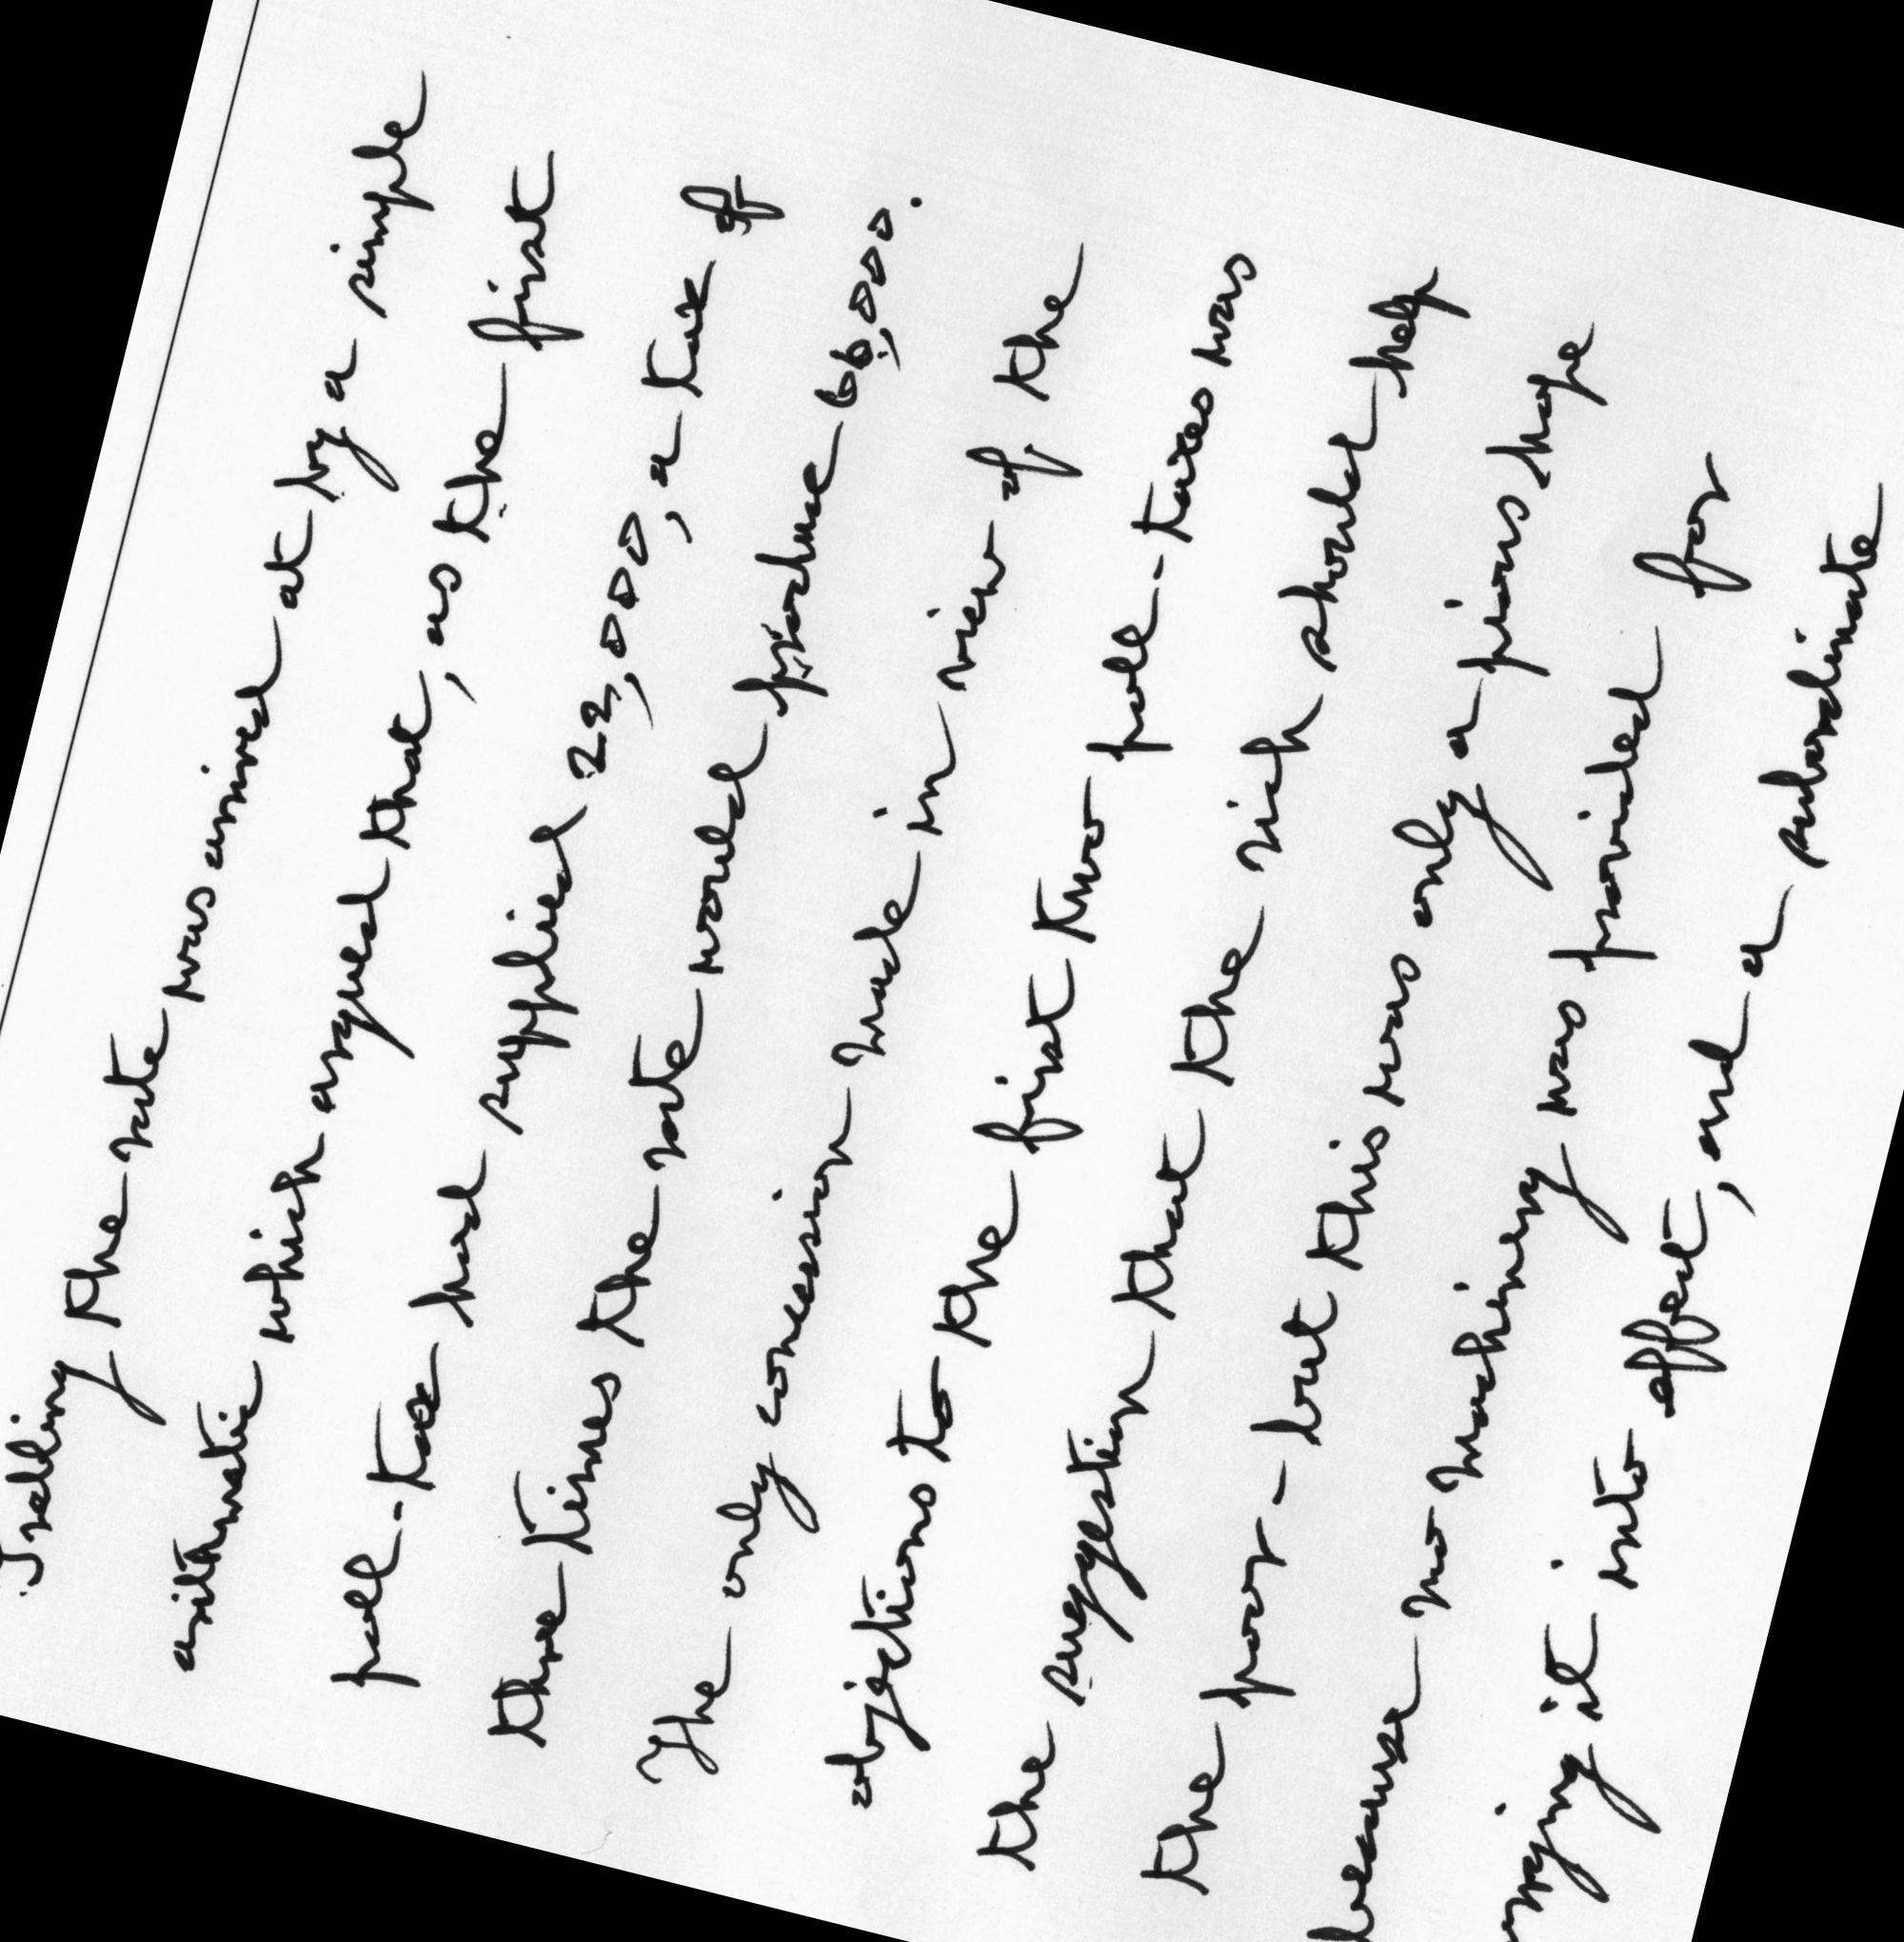 Trebling the rate was arrived at by a simple
arithmetic which argued that, as the first
poll-tax had supplied 22,000, a tax of
three times the rate would produce 66,000.
The only concession made in view of the
objections to the first two poll-taxes was
the suggestion that the rich should help
the poor - but this was only a pious hope
because no machinery was provided for
it into effect, and a subordinate